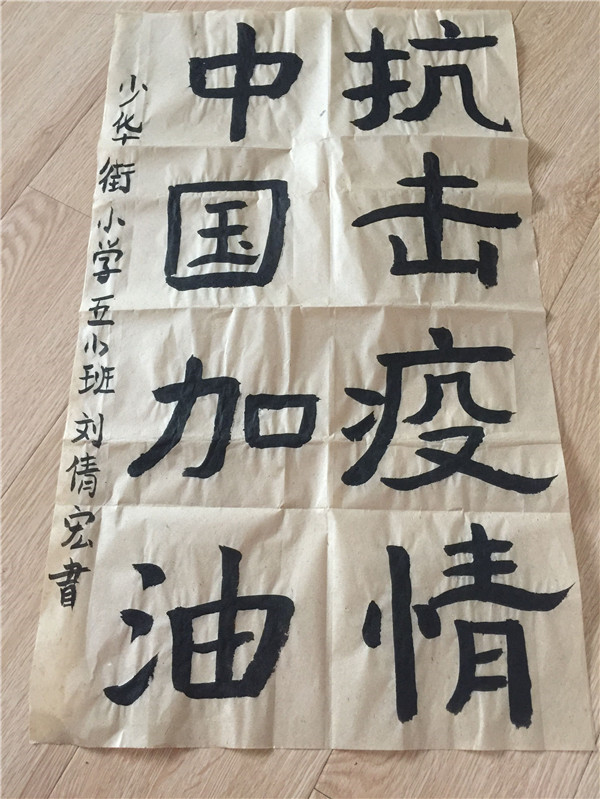 抗击疫情
中国加油
少华街小学五小班刘倩宏書